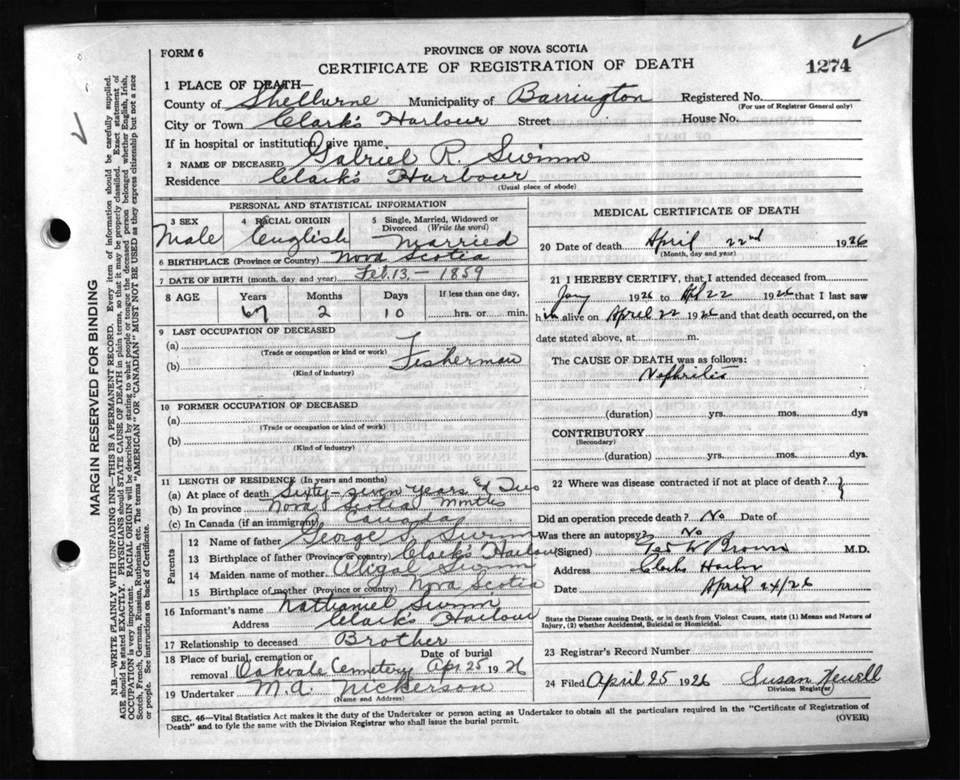 FORM 6
PROVINCE OF NOVA SCOTIA
CERTIFICATE OF REGISTRATION OF DEATH
1274
1 PLACE OF DEATH—
County of Shelburne Municipality of Barrington Registered No.
(For use of Registrar General only)
City or Town Clark's Harbour Street House No.
If in hospital or institution, give name
2 NAME OF DECEASED Gabriel R. Swimm
Residence Clark's Harbour
(Usual place of abode)
PERSONAL AND STATISTICAL INFORMATION
3 SEX 4 RACIAL ORIGIN 5 Single, Married, Widowed or Divorced (Write the word)
Male English Married
6 BIRTHPLACE (Province or Country) Nova Scotia
7 DATE OF BIRTH (month, day and year) Feb. 13 - 1859
8 AGE Years Months Days If less than one day,
67 2 10 hrs. or min.
9 LAST OCCUPATION OF DECEASED
(a)
(Trade or occupation or kind or work)
(b) Fisherman
(Kind of industry)
10 FORMER OCCUPATION OF DECEASED
(a)
(Trade or occupation or kind of work)
(b)
(Kind of industry)
11 LENGTH OF RESIDENCE (In years and months)
(a) At place of death Sixty-seven years & Two months
(b) In province Nova Scotia
(c) In Canada (if an immigrant) Canada
Parents
12 Name of father George S. Swimm
13 Birthplace of father (Province or country) Clark's Harbour
14 Maiden name of mother Abigal Swimm
15 Birthplace of mother (Province or country) Nova Scotia
16 Informant's name Nathaniel Swimm
Address Clark's Harbour
17 Relationship to deceased Brother
18 Place of burial, cremation or removal Oakvale Cemetery Date of burial Apr. 25 1926
19 Undertaker M. A. Nickerson
(Name and Address)
MEDICAL CERTIFICATE OF DEATH
20 Date of death April 22nd 1926
(Month, day and year)
21 I HEREBY CERTIFY, that I attended deceased from
Jany 1926 to Apl 22 1926 that I last saw
him alive on April 22 1926 and that death occurred, on the
date stated above, at m.
The CAUSE OF DEATH was as follows:
Nephritis
(duration) yrs. mos. dys
CONTRIBUTORY
(Secondary)
(duration) yrs. mos. dys.
22 Where was disease contracted if not at place of death?
Did an operation precede death? No Date of
Was there an autopsy? No
(Signed) Brown M.D.
Address Clarks Harbor
Date April 24/26
State the Disease causing Death, or in death from Violent Causes, state (1) Means and Nature of Injury, (2) whether Accidental, Suicidal or Homicidal.
23 Registrar's Record Number
24 Filed April 25 1926 Susan Newell
Division Registrar
SEC. 46—Vital Statistics Act makes it the duty of the Undertaker or person acting as Undertaker to obtain all the particulars required in the "Certificate of Registration of
Death" and to fyle the same with the Division Registrar who shall issue the burial permit.
(OVER)
MARGIN RESERVED FOR BINDING
N.B.—WRITE PLAINLY WITH UNFADING INK—THIS IS A PERMANENT RECORD. Every item of information should be carefully supplied.
AGE should be stated EXACTLY. PHYSICIANS should STATE CAUSE OF DEATH in plain terms, so that it may be properly classified. Exact statement of
OCCUPATION is very important. RACIAL ORIGIN will be described by stating to what people or tongue the deceased person belonged whether English, Irish,
Scotch, French, German, Russian, Ruthenian, etc. The terms "AMERICAN" OR "CANADIAN" MUST NOT BE USED as they express citizenship but not a race
or people. See instructions on back of Certificate.